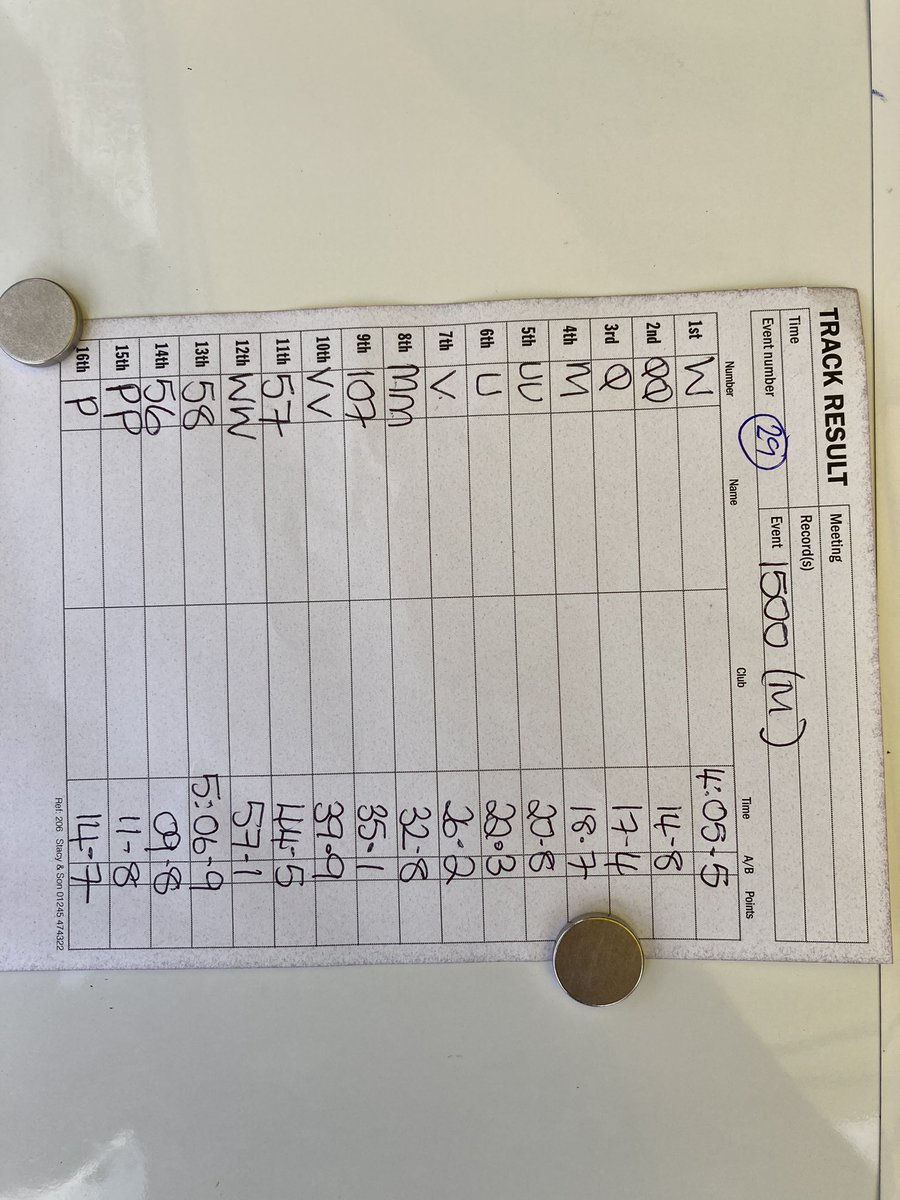 TRACK RESULT
Meeting
Time
Record(s)
Event number 29 Event 1500 (M)
Number Name Club Time A/B Points
1st W 4:05.5
2nd QQ 14.8
3rd Q 17.4
4th M 18.7
5th UU 20.8
6th U 22.3
7th V 26.2
8th MM 32.8
9th 107 35.1
10th VV 39.9
11th 57 44.5
12th WW 57.1
13th 58 5:06.9
14th 56 09.8
15th PP 11.8
16th P 14.7
Ref: 206 Stacy & Son 01245 474322